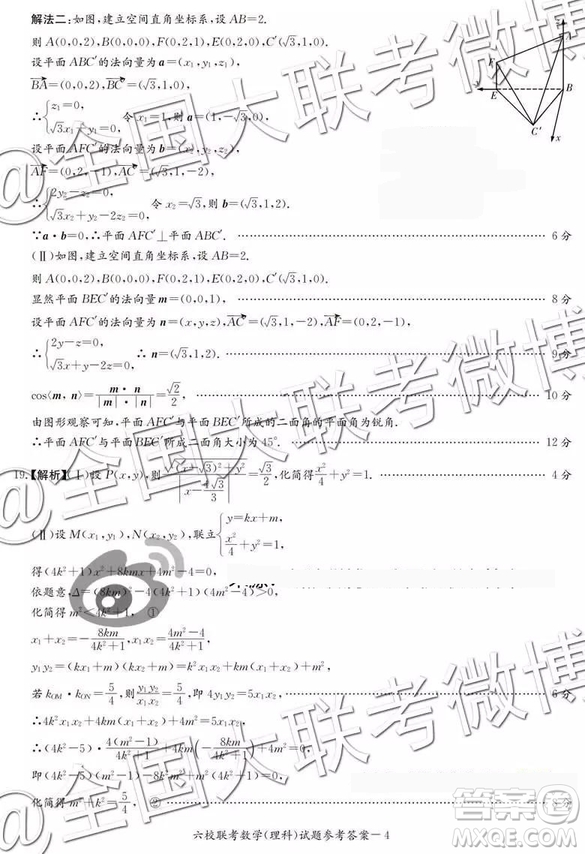 解法二:如图,建立空间直角坐标系,设AB=2.
则A(0,0,2),B(0,0,0),F(0,2,1),E(0,2,0),C′(√3,1,0).
设平面ABC′的法向量为a=(x₁,y₁,z₁),
BA=(0,0,2),BC′=(√3,1,0),
∴{z₁=0, √3x₁+y₁=0, 令x₁=1,则a=(1,-√3,0),
设平面AFC′的法向量为b=(x₂,y₂,z₂),
AF=(0,2,-1),AC′=(√3,1,-2),
∴{2y₂-z₂=0, √3x₂+y₂-2z₂=0. 令x₂=√3,则b=(√3,1,2).
∵a·b=0,∴平面AFC′⊥平面ABC′. 6分
(Ⅱ)如图,建立空间直角坐标系,设AB=2.
则A(0,0,2),B(0,0,0),F(0,2,1),E(0,2,0),C′(√3,1,0).
显然平面BEC′的法向量m=(0,0,1), 8分
设平面AFC′的法向量为n=(x,y,z),AC′=(√3,1,-2),AF=(0,2,-1),
∴{2y-z=0, √3x+y-2z=0. ∴n=(√3,1,2). 9分
cos⟨m,n⟩=m·n/|m|·|n|=√2/2, 10分
由图形观察可知,平面AFC′与平面BEC′所成的二面角的平面角为锐角.
∴平面AFC′与平面BEC′所成二面角大小为45°. 12分
19.【解析】(Ⅰ)设P(x,y),则√((x-√3)²+y²)/|x-4√3/3|=√3/2,化简得x²/4+y²=1. 4分
(Ⅱ)设M(x₁,y₁),N(x₂,y₂),联立{y=kx+m, x²/4+y²=1,
得(4k²+1)x²+8kmx+4m²-4=0,
依题意,Δ=(8km)²-4(4k²+1)(4m²-4)>0,
化简得m²<4k²+1, ①
x₁+x₂=-8km/(4k²+1),x₁x₂=(4m²-4)/(4k²+1),
y₁y₂=(kx₁+m)(kx₂+m)=k²x₁x₂+km(x₁+x₂)+m²,
若k_OM·k_ON=5/4,则y₁y₂/x₁x₂=5/4,即4y₁y₂=5x₁x₂, 6分
∴4k²x₁x₂+4km(x₁+x₂)+4m²=5x₁x₂,
∴(4k²-5)·4(m²-1)/(4k²+1)+4km(-8km/(4k²+1))+4m²=0,
即(4k²-5)(m²-1)-8k²m²+m²(4k²+1)=0,
化简得m²+k²=5/4, ②
六校联考数学(理科)试题参考答案-4
@全国大联考微博
@全国大联考微博
@全国大联考微博
A
F
B
E
C′
x